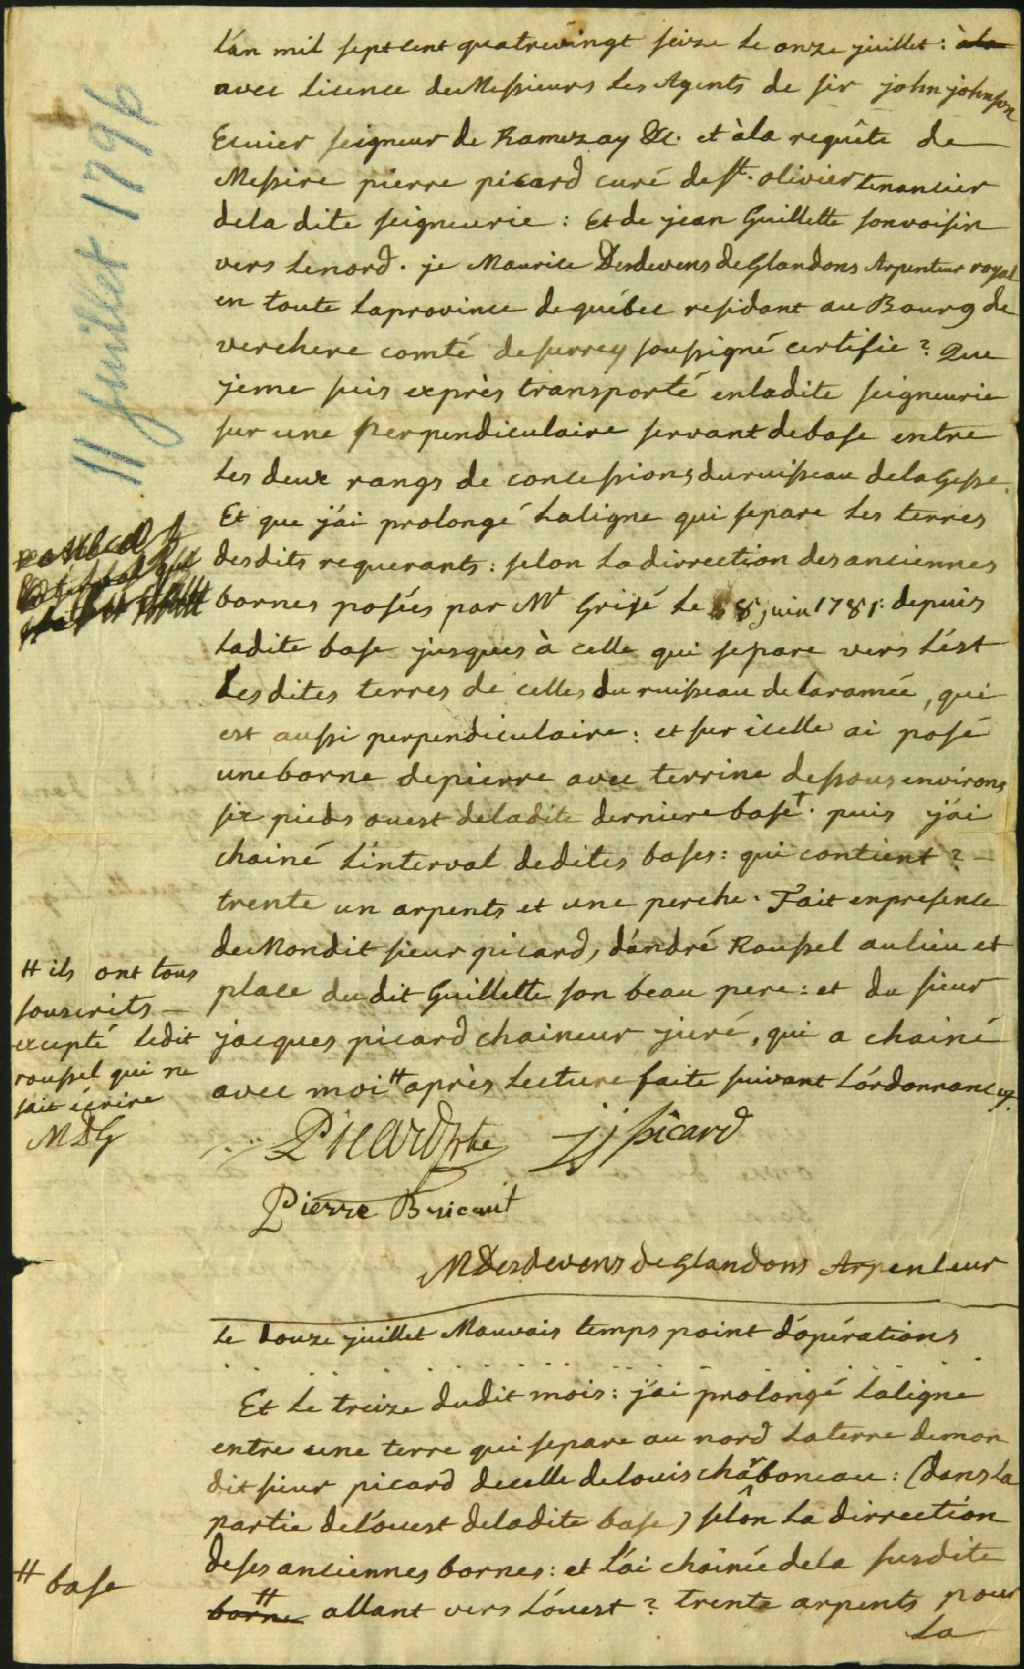 11 Juillet 1796
L'an mil sept cent quatrevingt seize le onze juillet : à la
avec licence de Messieurs les Agents de sir john johnson
Ecuier seigneur de Ramezay &c. et à la requête de
Messire pierre picard curé de st. olivier tenancier
de la dite seigneurie : Et de jean Guillette son voisin
vers le nord. je Maurice Desdevens de Glandons Arpenteur royal
en toute la province de québec residant au Bourg de
verchere comté de surrey soussigné certifie ? Que
je me suis exprès transporté en ladite seigneurie
sur une perpendiculaire servant de base entre
les deux rangs de concessions du ruisseau de la Gesse.
Et que j'ai prolongé la ligne qui separe les terres
desdits requerants : selon la dirrection des anciennes
bornes posées par Mr Grisé le 8 juin 1781 : depuis
ladite base jusques à celle qui separe vers l'ést
Lesdites terres de celles du ruisseau de laramée, qui
est aussi perpendiculaire : et sur icelle ai posé
une borne de pierre avec terrine dessous environs
six pieds ouest de ladite derniere base †. puis j'ai
chainé l'interval de dites bases : qui contient ?
trente un arpents et une perche. Fait en presence
de Mondit sieur picard, d'andré Roussel au lieu et
place du dit Guillette son beau pere : et du sieur
jacques picard chaineur juré, qui a chainé
avec moi # après lecture faite suivant l'ordonnance
# ils ont tous
souscrits
excepté ledit
roussel qui ne
sait écrire
MDG
Picard ptre jj picard
Pierre Bricault
MDesdevens de Glandons Arpenteur
le douze juillet Mauvais temps point d'opérations
Et le treize dudit mois : j'ai prolongé la ligne
entre une terre qui separe au nord la terre de mon
dit sieur picard de celle de louis charboneau : (dans la
partie de l'ouest de ladite base) selon la dirrection
de ses anciennes bornes : et l'ai chainée de la susdite
borne # allant vers l'ouest ? trente arpents pour
# base
la